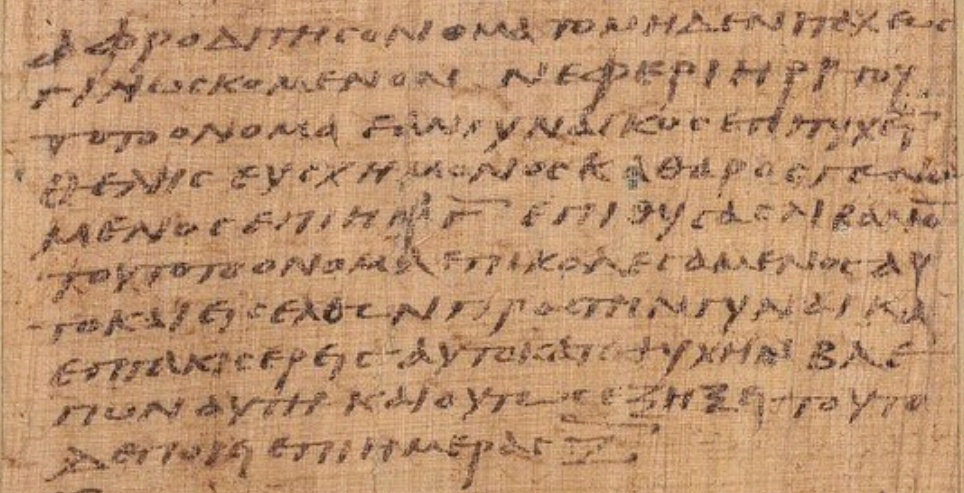 αφροδιτησονομα τομηδενιταχεωσ
γινωσκομενον νεφεριηρι του
τοτοονομα εανγυναικοσεπιτυχειν
θελησ ευσχημονοσκαθαροσγενο
μενοσεπιημγ επιθυσασλιβανον
τουτοτοονομαεπικαλεσαμενοσαυ
τοκαιεισελθωνπροστηνγυναικα
επτακισερεισαυτοκαταψυχην βλε
πωναυτη καιουτωσεηξει τουτο
δεποιει επιημερασ ζ